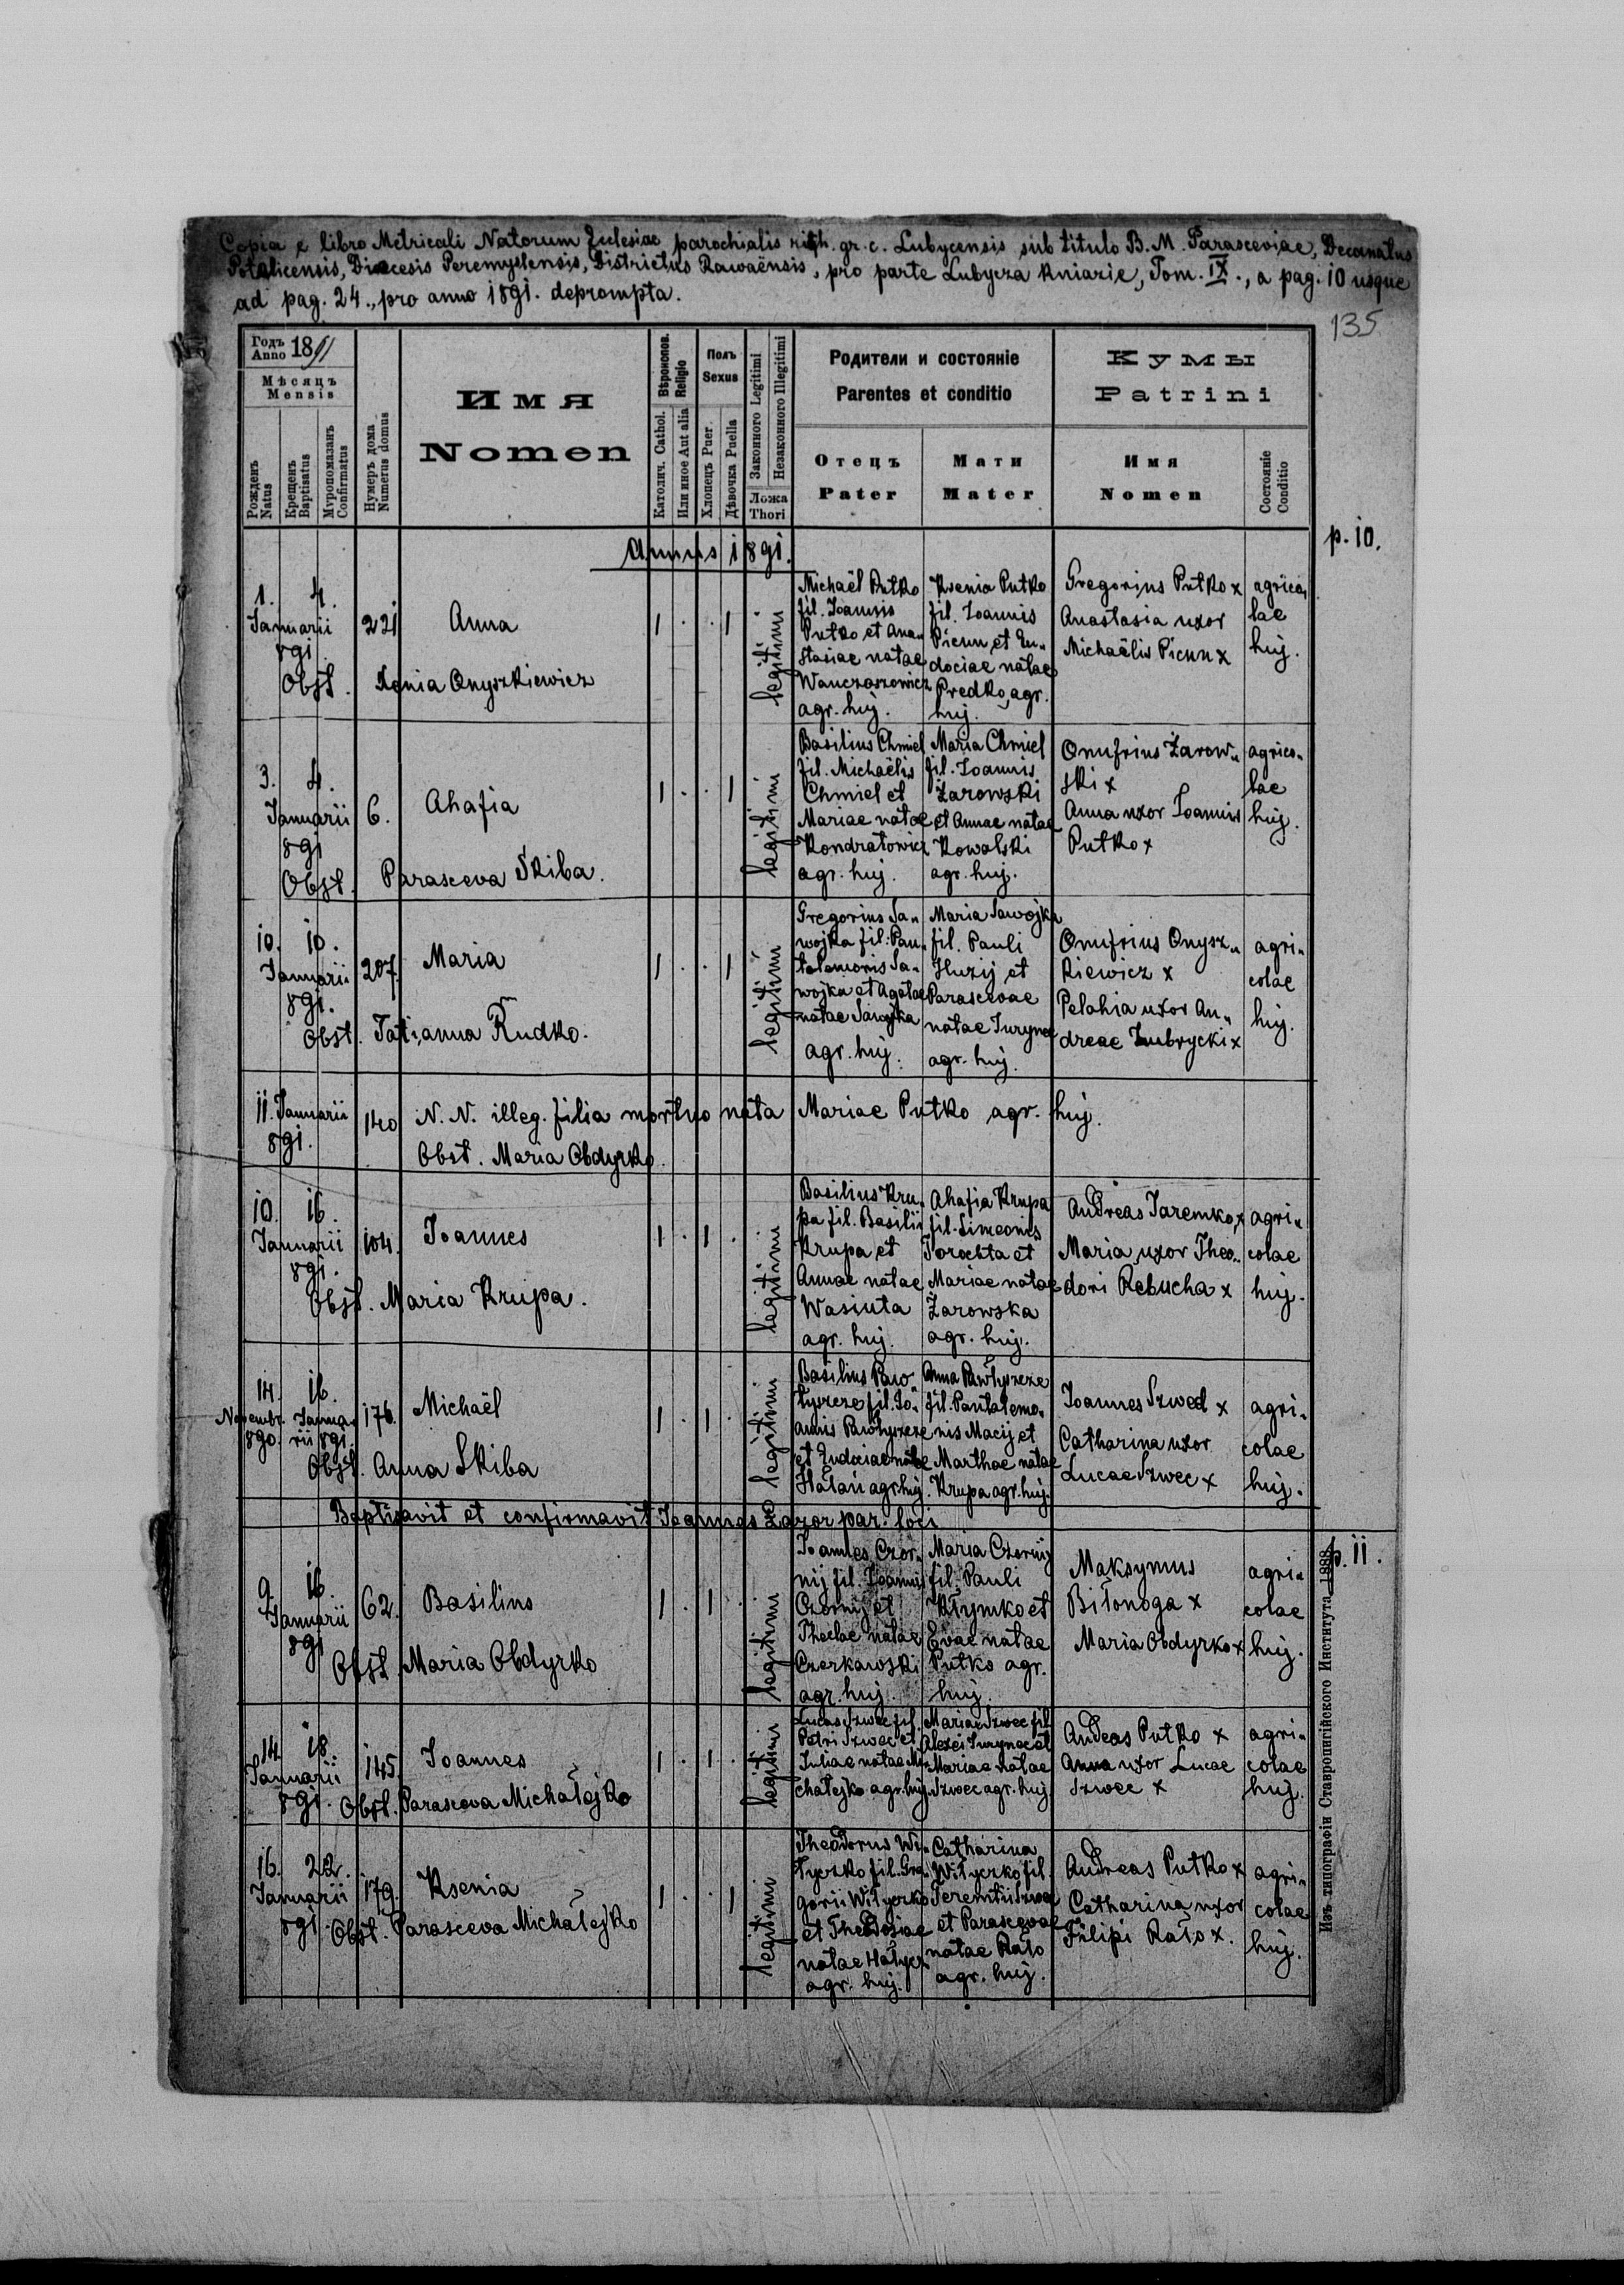 Copia e libro Metricali Natorum Ecclesiae parochialis rith. gr. c. Lubycensis sub titulo B. M. Parasceviae, Decanatus
Potylicensis, Diecesis Peremyslensis, Districtus Rawaënsis, pro parte Lubycza Kniazie, Tom. IX., a pag. 10 usque
ad pag. 24., pro anno 1891. deprompta.
135
Годъ
Anno 1891
Мѣсяцъ
Mensis
Рожденъ
Natus
Крещенъ
Baptisatus
Мѵропомазанъ
Confirmatus
Нумеръ дома
Numerus domus
Имя
Nomen
Вѣроиспов.
Religio
Католич. Cathol.
Или иное Aut alia
Полъ
Sexus
Хлопецъ Puer
Дѣвочка Puella
Законного Legitimi
Незаконного Illegitimi
Ложа
Thori
Родители и состояніе
Parentes et conditio
Отецъ
Pater
Мати
Mater
Кумы
Patrini
Имя
Nomen
Состояніе
Conditio
p. 10.
Annus 1891.
1. 4.
Januarii
891
221
Anna
1 . . 1
legitimi
Michaël Putko
fil. Joannis
Putko et Ana-
stasiae natae
Wanczoszowicz
agr. huj.
Ksenia Putko
fil. Joannis
Picun et Eu-
dociae natae
Predko, agr.
huj.
Gregorius Putko x
Anastasia uxor
Michaëlis Picun x
agrico-
lae
huj.
Obst. Xenia Onyszkiewicz
3. 4.
Januarii
891
6.
Ahafia
1 . . 1
legitimi
Basilius Chmiel
fil. Michaëlis
Chmiel et
Mariae natae
Kondratowicz
agr. huj.
Maria Chmiel
fil. Joannis
Żarowski
et Annae natae
Kowalski
agr. huj.
Onufrius Żarow-
ski x
Anna uxor Joannis
Putko x
agrico-
lae
huj.
Obst. Parasceva Skiba.
10. 10.
Januarii
891.
207.
Maria
1 . . 1
legitimi
Gregorius Sa-
wojka fil. Pan-
talemonis Sa-
wojka et Agatae
natae Sawojka
agr. huj.
Maria Sawojka
fil. Pauli
Huzij et
Parascevae
natae Juryncz
agr. huj.
Onufrius Onysz-
kiewicz x
Pelahia uxor An-
dreae Zubrycki x
agri-
colae
huj.
Obst. Tatianna Rudko.
11. Januarii
891.
140
N. N. illeg. filia mortuo nata Mariae Putko agr. huj.
Obst. Maria Obdyrko.
10. 16.
Januarii
891.
104.
Joannes
1 . 1 .
legitimi
Basilius Kru-
pa fil. Basilii
Krupa et
Annae natae
Wasiuta
agr. huj.
Ahafia Krupa
fil. Simeonis
Torochta et
Mariae natae
Żarowska
agr. huj.
Andreas Jaremko x
Maria uxor Theo-
dori Rebucha x
agri-
colae
huj.
Obst. Maria Krupa.
14. 16.
Novembr. Janua-
890. rii 891.
176.
Michaël
1 . 1 .
legitimi
Basilius Paw-
łyszcze fil. Jo-
annis Pawłyszcze
et Eudociae natae
Hałań agr. huj.
Anna Pawłyszcze
fil. Pantalemo-
nis Macij et
Marthae natae
Krupa agr. huj.
Joannes Szwed x
Catharina uxor
Lucae Szwec x
agri-
colae
huj.
Obst. Anna Skiba
Baptisavit et confirmavit Joannes Łazor par. loci
p. 11.
9. 16.
Januarii
891
62.
Basilius
1 . 1 .
legitimi
Joannes Czor-
nij fil. Joannis
Czornij et
Theclae natae
Czerkawski
agr. huj.
Maria Czornij
fil. Pauli
Kłymko et
Evae natae
Putko agr.
huj.
Maksymus
Biłonoga x
Maria Obdyrko x
agri-
colae
huj.
Obst. Maria Obdyrko
14. 18.
Januarii
891.
145.
Joannes
1 . 1 .
legitimi
Lucas Szwec fil.
Petri Szwec et
Juliae natae Mi-
chałejko agr. huj.
Maria Szwec fil.
Alexei Juryncz et
Mariae natae
Szwec agr. huj.
Andreas Putko x
Anna uxor Lucae
Szwec x
agri-
colae
huj.
Obst. Parasceva Michałejko
16. 22.
Januarii
891.
179.
Ksenia
1 . . 1
legitimi
Theodorus Wi-
łyczko fil. Gre-
gorii Wiłyczko
et Theodosiae
natae Hałycz
agr. huj.
Catharina
Wiłyczko fil.
Jeremiii Szwec
et Parascevae
natae Rało
agr. huj.
Andreas Putko x
Catharina uxor
Filipi Rało x.
agri-
colae
huj.
Obst. Parasceva Michałejko
Изъ типографіи Ставропигійского Института 1888.